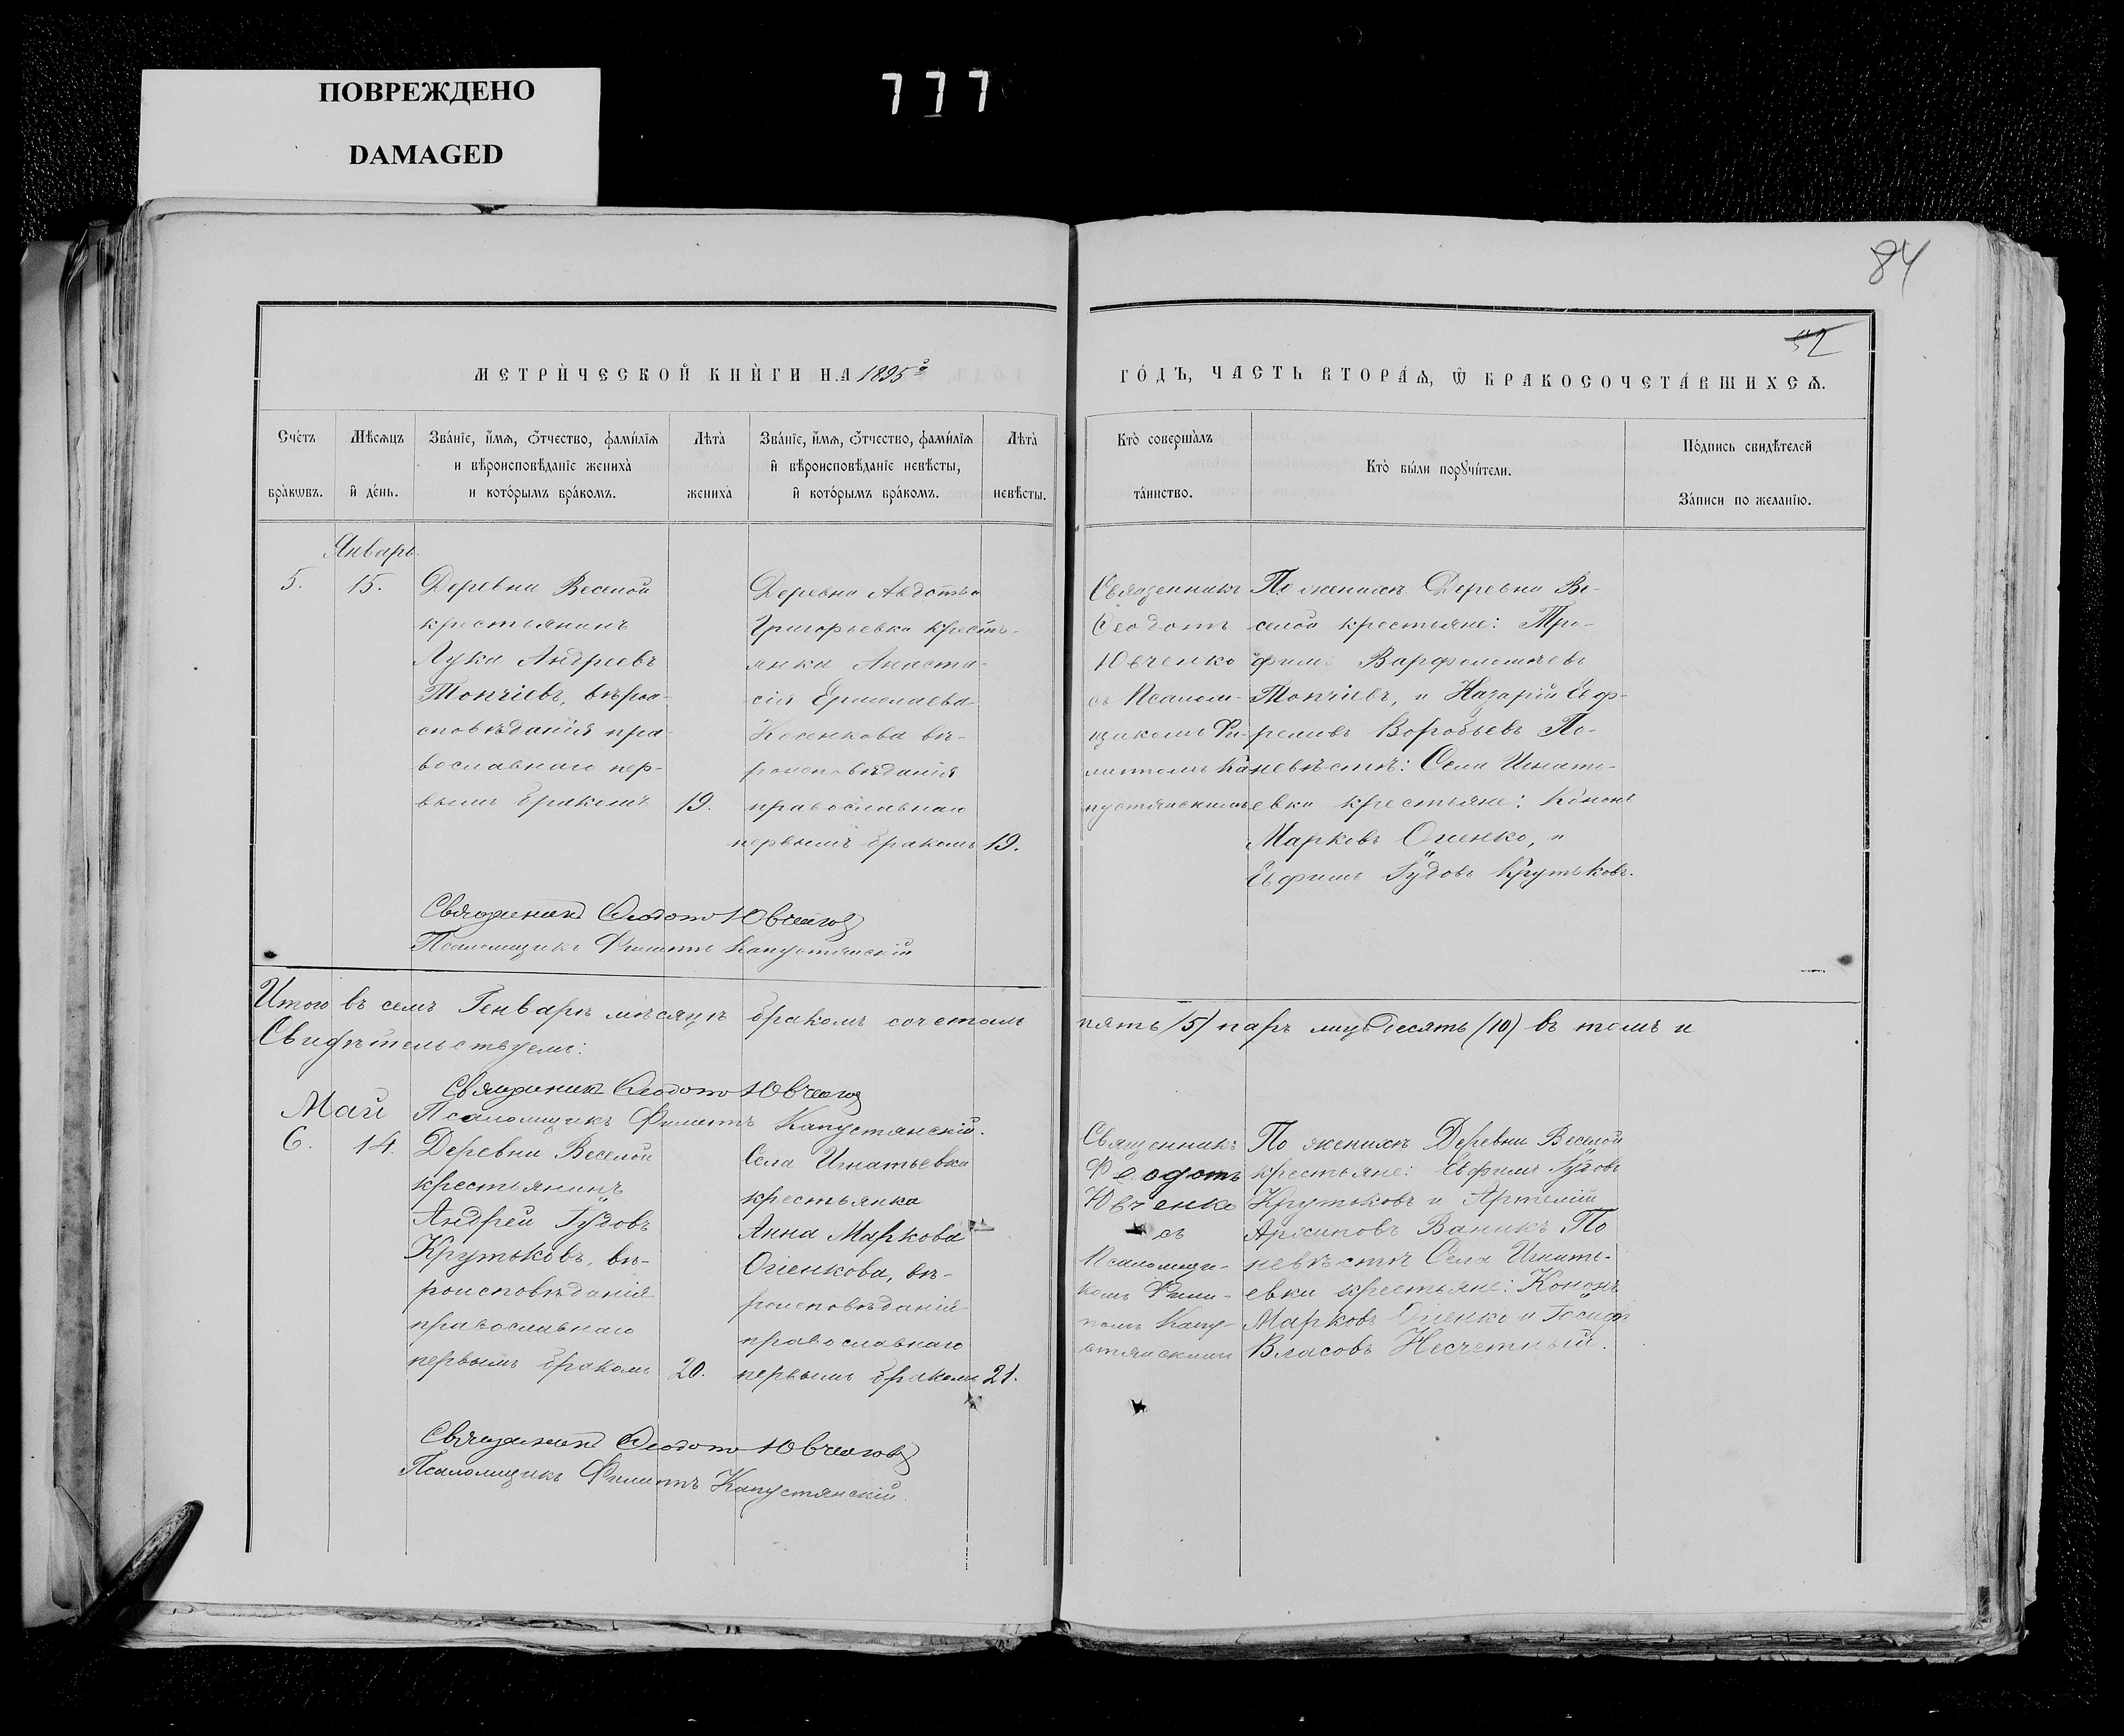 ПОВРЕЖДЕНО
DAMAGED
777
84
52
МЕТРИ́ЧЕСКОЙ КНИ́ГИ НА 1895й
ГО́ДЪ, ЧАСТЬ ВТОРА́Ѧ, Ѿ БРАКОСОЧЕТА́ВШИХСѦ.
Сче́тъ бра́кѡвъ.
Мѣ́сѧцъ и҆ де́нь.
Зва́нїе, и҆́мѧ, ѻ҆́тчество, фами́лїѧ
и вѣроисповѣ́данїе жениха̀
и кото́рымъ бра́комъ.
Лѣта̀ жениха̀
Зва́нїе, и҆́мѧ, ѻ҆́тчество, фами́лїѧ
и҆ вѣроисповѣ́данїе невѣ́сты,
и҆ кото́рымъ бра́комъ.
Лѣта̀ невѣ́сты.
Кто̀ соверша́лъ та́инство.
Кто̀ бы́ли порꙋчи́тели.
По́дпись свидѣ́телей
За́писи по жела́нїю.
Январь
5.
15.
Деревни Веселой
крестьянинъ
Лука Андреевъ
Топчіевъ, вѣрои-
сповѣданія пра-
вославнаго пер-
вымъ бракомъ
19.
Деревни Авдотьо
Григорьевка кресть-
янка Анаста-
сія Ермолаева
Косенкова вѣ-
роисповѣданія
православнаго
первымъ бракомъ
19.
Священникъ
Ѳеодотъ
Ювченко
съ Псалом-
щикомъ Фи-
липпомъ Ка-
пустянскимъ
По женихѣ Деревни Ве-
селой крестьяне: Тро-
фимъ Варфоломѣевъ
Топчіевъ, и Назарій Еф-
ремовъ Воробьевъ По
невѣстѣ: Села Игнать-
евки крестьяне: Кононъ
Марковъ Огіенко, и
Ефимъ Гудовъ Крутьковъ.
Священникъ Ѳеодотъ Ювченко
Псаломщикъ Филиппъ Капустянскій
Итого въ семъ Генварѣ мѣсяцѣ бракомъ сочетали
пять /5/ паръ лицъ десять /10/ въ томъ и
Свидѣтельствуемъ:
Священникъ Ѳеодотъ Ювченко
Псаломщикъ Филиппъ Капустянскій.
Май
6.
14.
Деревни Веселой
крестьянинъ
Андрей Гудовъ
Крутьковъ, вѣ-
роисповѣданія
православнаго
первымъ бракомъ
20.
Села Игнатьевки
крестьянка
Анна Маркова
Огіенкова, вѣ-
роисповѣданія
православнаго
первымъ бракомъ
21.
Священникъ
Феодотъ
Ювченко
съ
Псаломщи-
комъ Фили-
помъ Капу-
стянскимъ
По женихѣ Деревни Веселой
крестьяне: Ефимъ Гудовъ
Крутьковъ и Артемій
Архиповъ Ваникъ По
невѣстѣ Села Игнать-
евки крестьяне: Кононъ
Марковъ Огіенко и Іосифъ
Власовъ Несчетный.
Священникъ Ѳеодотъ Ювченко
Псаломщикъ Филиппъ Капустянскій